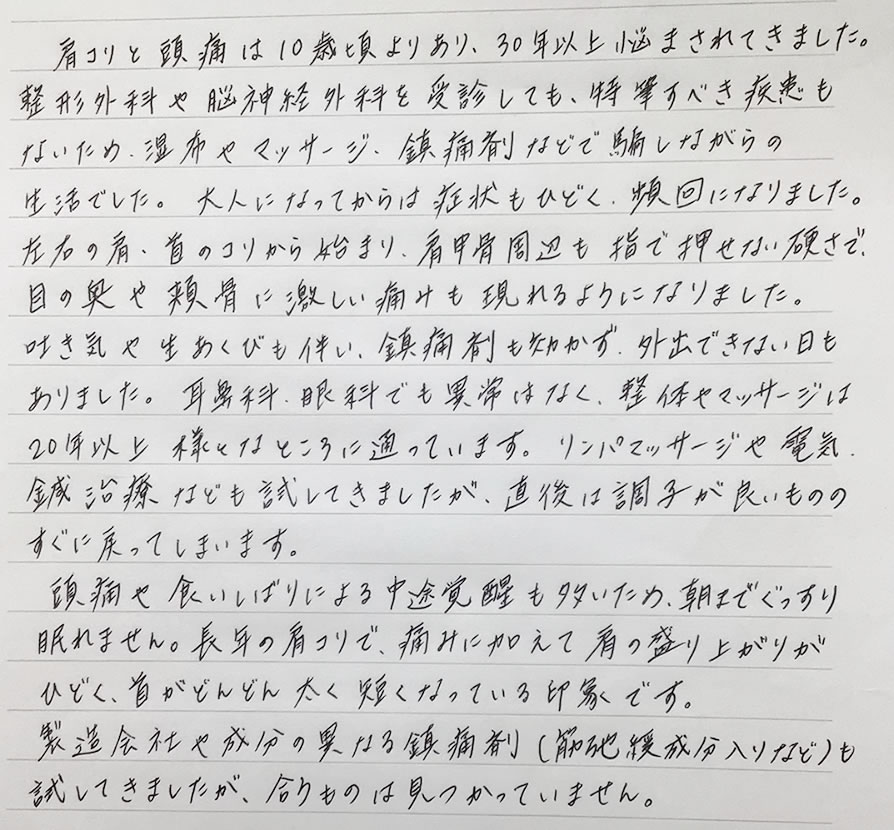 肩コリと頭痛は10歳頃よりあり、30年以上悩まされてきました。
整形外科や脳神経外科を受診しても、特筆すべき疾患も
ないため、湿布やマッサージ、鎮痛剤などで騙しながらの
生活でした。大人になってからは症状もひどく、頻回になりました。
左右の肩、首のコリから始まり、肩甲骨周辺も指で押せない硬さで、
目の奥や頬骨に激しい痛みも現れるようになりました。
吐き気や生あくびも伴い、鎮痛剤も効かず、外出できない日も
ありました。耳鼻科、眼科でも異常はなく、整体やマッサージは
20年以上様々なところに通っています。リンパマッサージや電気、
鍼治療なども試してきましたが、直後は調子が良いものの
すぐに戻ってしまいます。
頭痛や食いしばりによる中途覚醒も多いため、朝までぐっすり
眠れません。長年の肩コリで、痛みに加えて肩の盛り上がりが
ひどく、首がどんどん太く短くなっている印象です。
製造会社や成分の異なる鎮痛剤(筋弛緩成分入りなど)も
試してきましたが、合うものは見つかっていません。